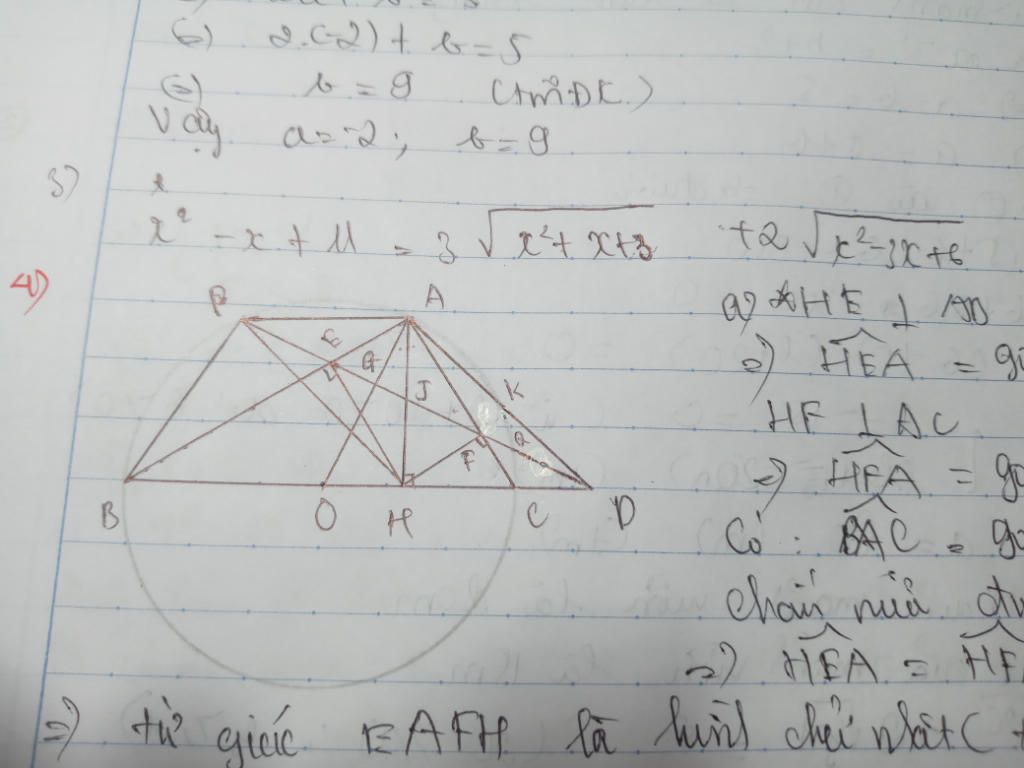 (=) 2.(-2) + b = 5
(=) b = 9 (tmĐK)
Vậy a = -2 ; b = 9
3)
x² - x + 11 = 3 √x² + x + 3 + 2 √x² - 3x + 6
4)
P A
E G J K
F Q
B O H C D
a) HE ⊥ AB
=> HEA = 90
HF ⊥ AC
=> HFA = 90
Có : BAC = 90
chắn nửa
=> HEA = HFA
=> tứ giác EAFH là hình chữ nhật (